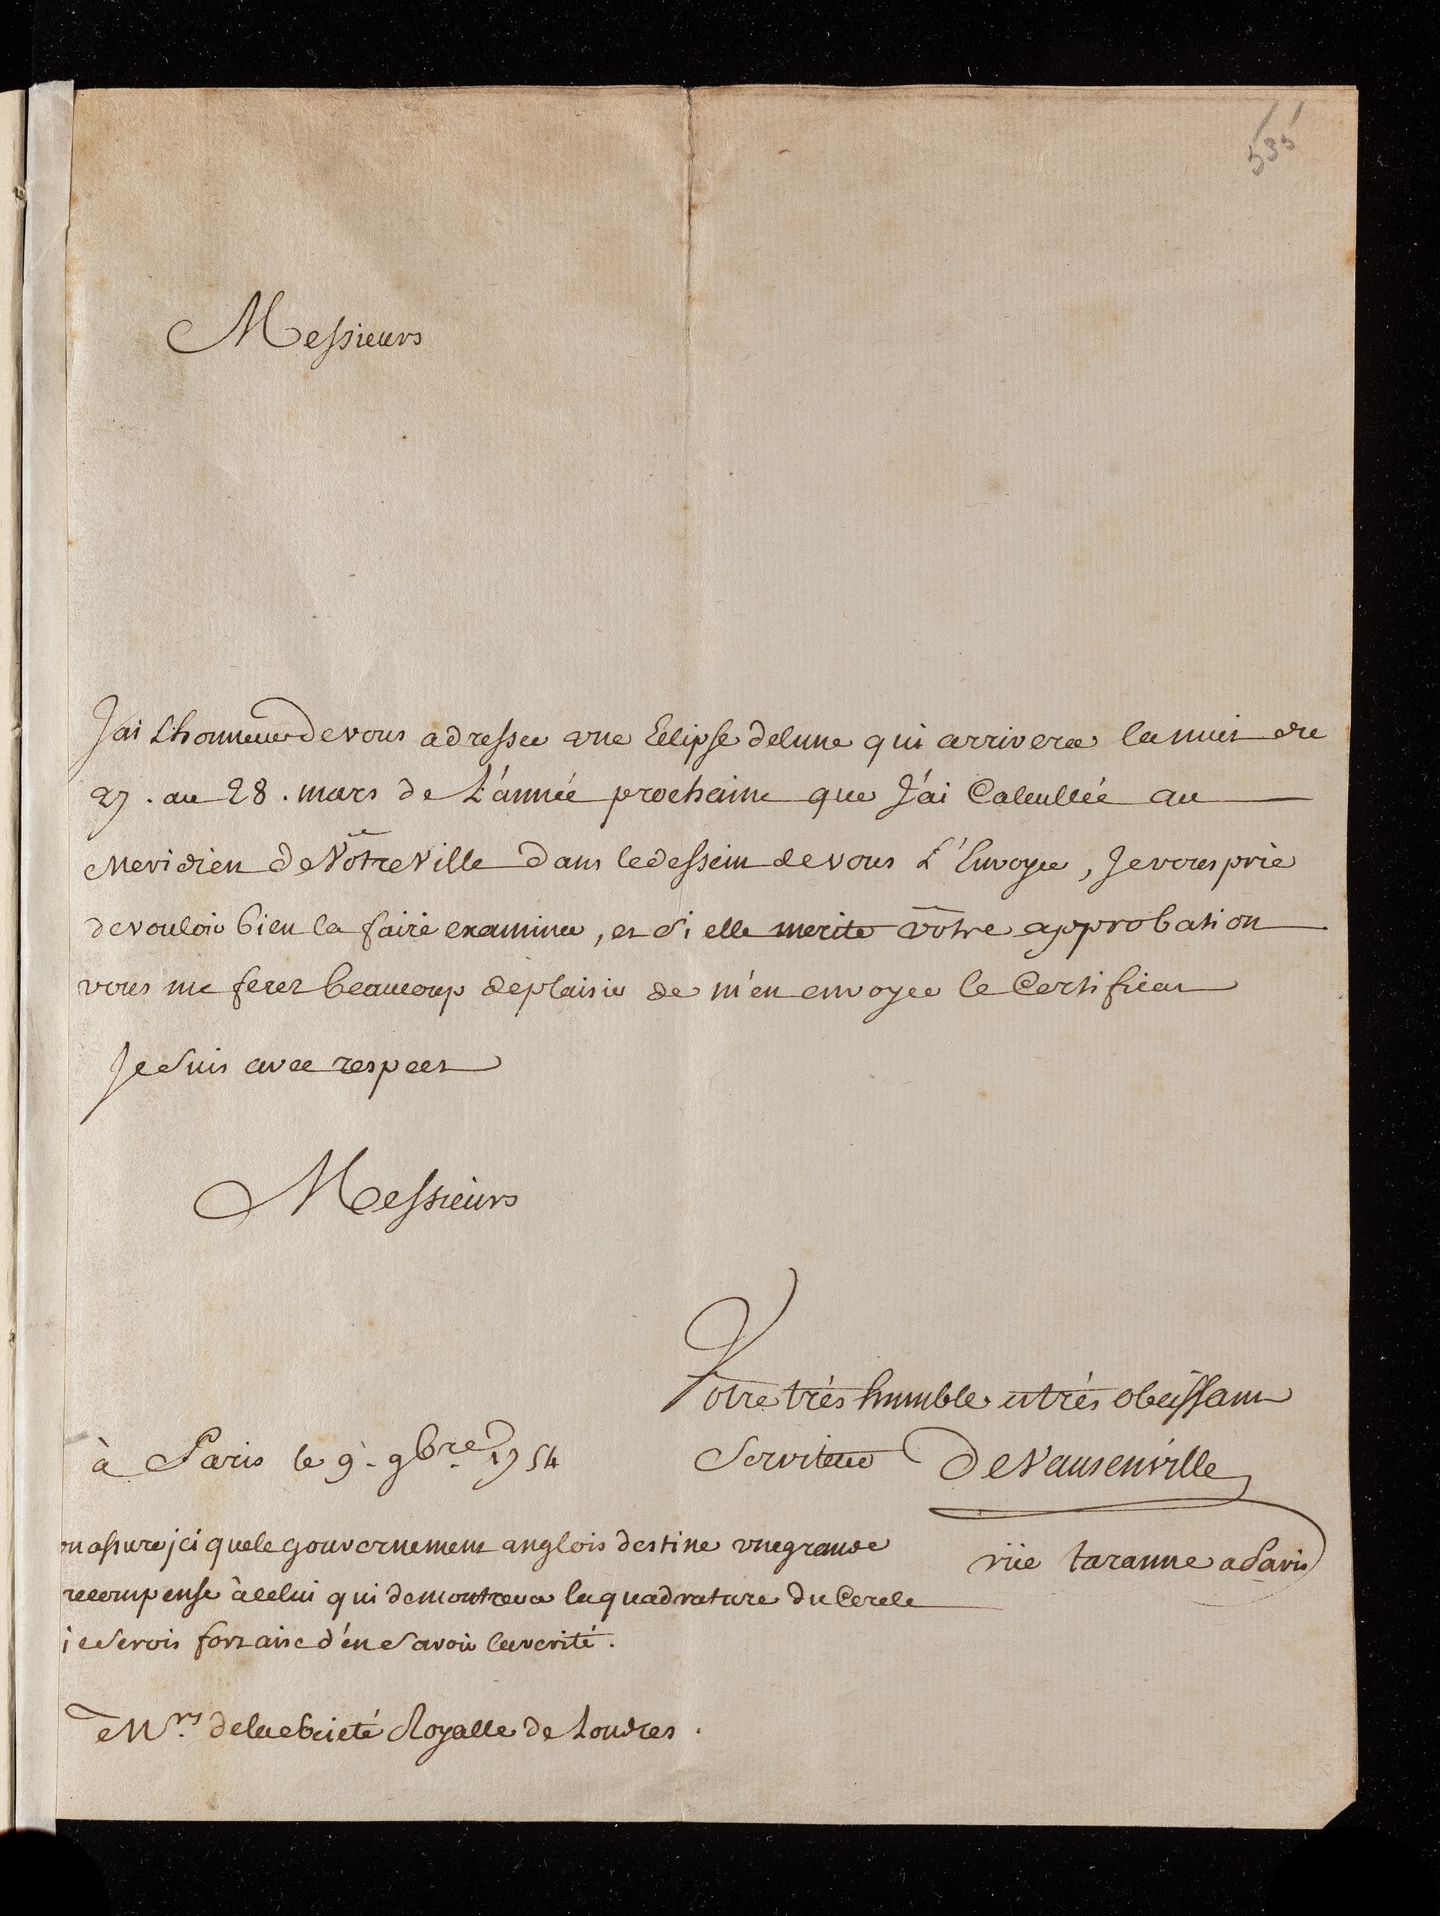 535
Messieurs
J'ai L'honneur de vous adresser une Eclipse de lune qui arrivera la nuit du
27. au 28. mars de L'année prochaine que J'ai Calcullée au
Meridien de Vôtre Ville dans le dessein de vous L'Envoyer, Je vous prie
de vouloir bien la faire examiner, et si elle merite vôtre approbation
vous me ferez beaucoup de plaisir de m'en envoyer le Certificat
Je suis avec respect
Messieurs
Votre très humble et très obeissant
Serviteur DeVausenville
à Paris le 9. 9bre. 1754
rüe taranne a Paris
on assure jci que le gouvernement anglois destine une grande
recompense à celui qui demontrera la quadrature du Cercle
je serois fort aise d'en savoir la verité.
à Mrs. de la Societé Royalle de Londres.